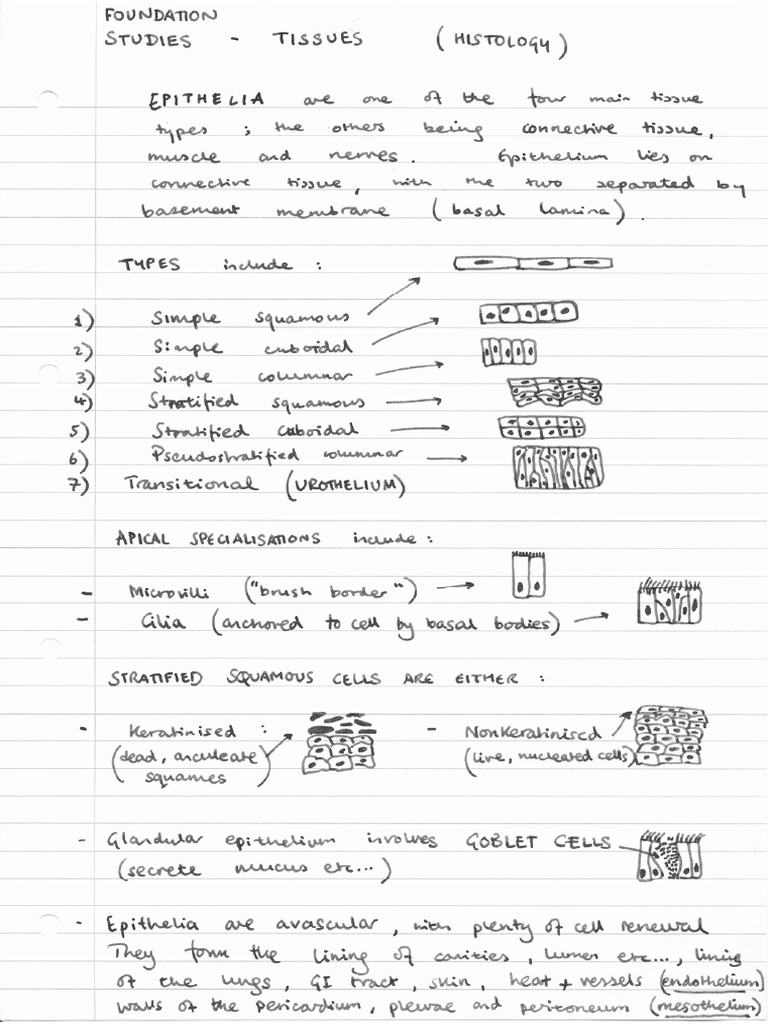 FOUNDATION
STUDIES - TISSUES (HISTOLOGY)
EPITHELIA are one of the four main tissue
types ; the others being connective tissue,
muscle and nerves. Epithelium lies on
connective tissue, with the two separated by
basement membrane (basal lamina).
TYPES include :
1) Simple squamous
2) Simple cuboidal
3) Simple columnar
4) Stratified squamous
5) Stratified cuboidal
6) Pseudostratified columnar
7) Transitional (UROTHELIUM)
APICAL SPECIALISATIONS include :
- Microvilli ("brush border")
- Cilia (anchored to cell by basal bodies)
STRATIFIED SQUAMOUS CELLS ARE EITHER :
- Keratinised : - NonKeratinised
(dead, anculeate (live, nucleated cells)
squames)
- Glandular epithelium involves GOBLET CELLS
(secrete mucus etc...)
- Epithelia are avascular, with plenty of cell renewal
They form the lining of cavities, lumen etc..., lining
of the lungs, GI tract, skin, heat + vessels (endothelium)
walls of the pericardium, pleurae and peritoneum (mesothelium)